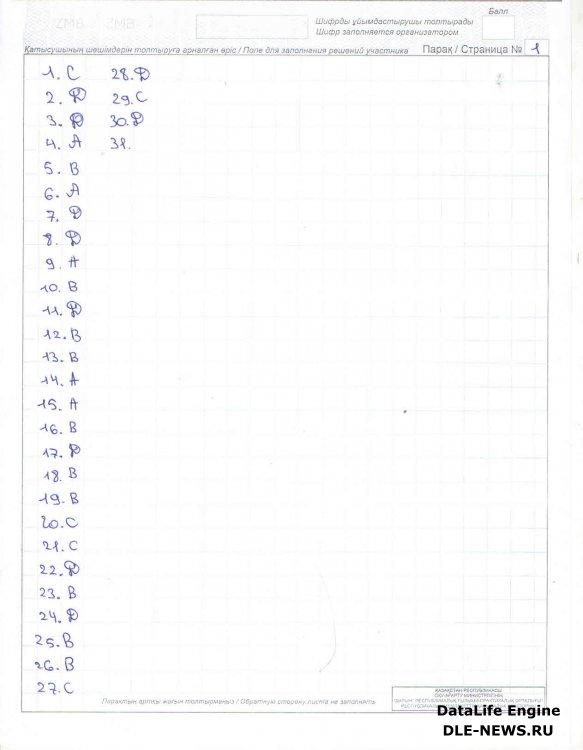 Балл
Шифрды ұйымдастырушы толтырады
Шифр заполняется организатором
Қатысушының шешімдерін толтыруға арналған өріс / Поле для заполнения решений участника Парақ / Страница № 1
1. C
2. D
3. D
4. A
5. B
6. A
7. D
8. D
9. A
10. B
11. D
12. B
13. B
14. A
15. A
16. B
17. D
18. B
19. B
20. C
21. C
22. D
23. B
24. D
25. B
26. B
27. C
28. D
29. C
30. D
31.
Парақтың артқы жағын толтырмаңыз / Обратную сторону листа не заполнять
ҚАЗАҚСТАН РЕСПУБЛИКАСЫ
ОҚУ-АҒАРТУ МИНИСТРЛІГІНІҢ
DataLife Engine
DLE-NEWS.RU